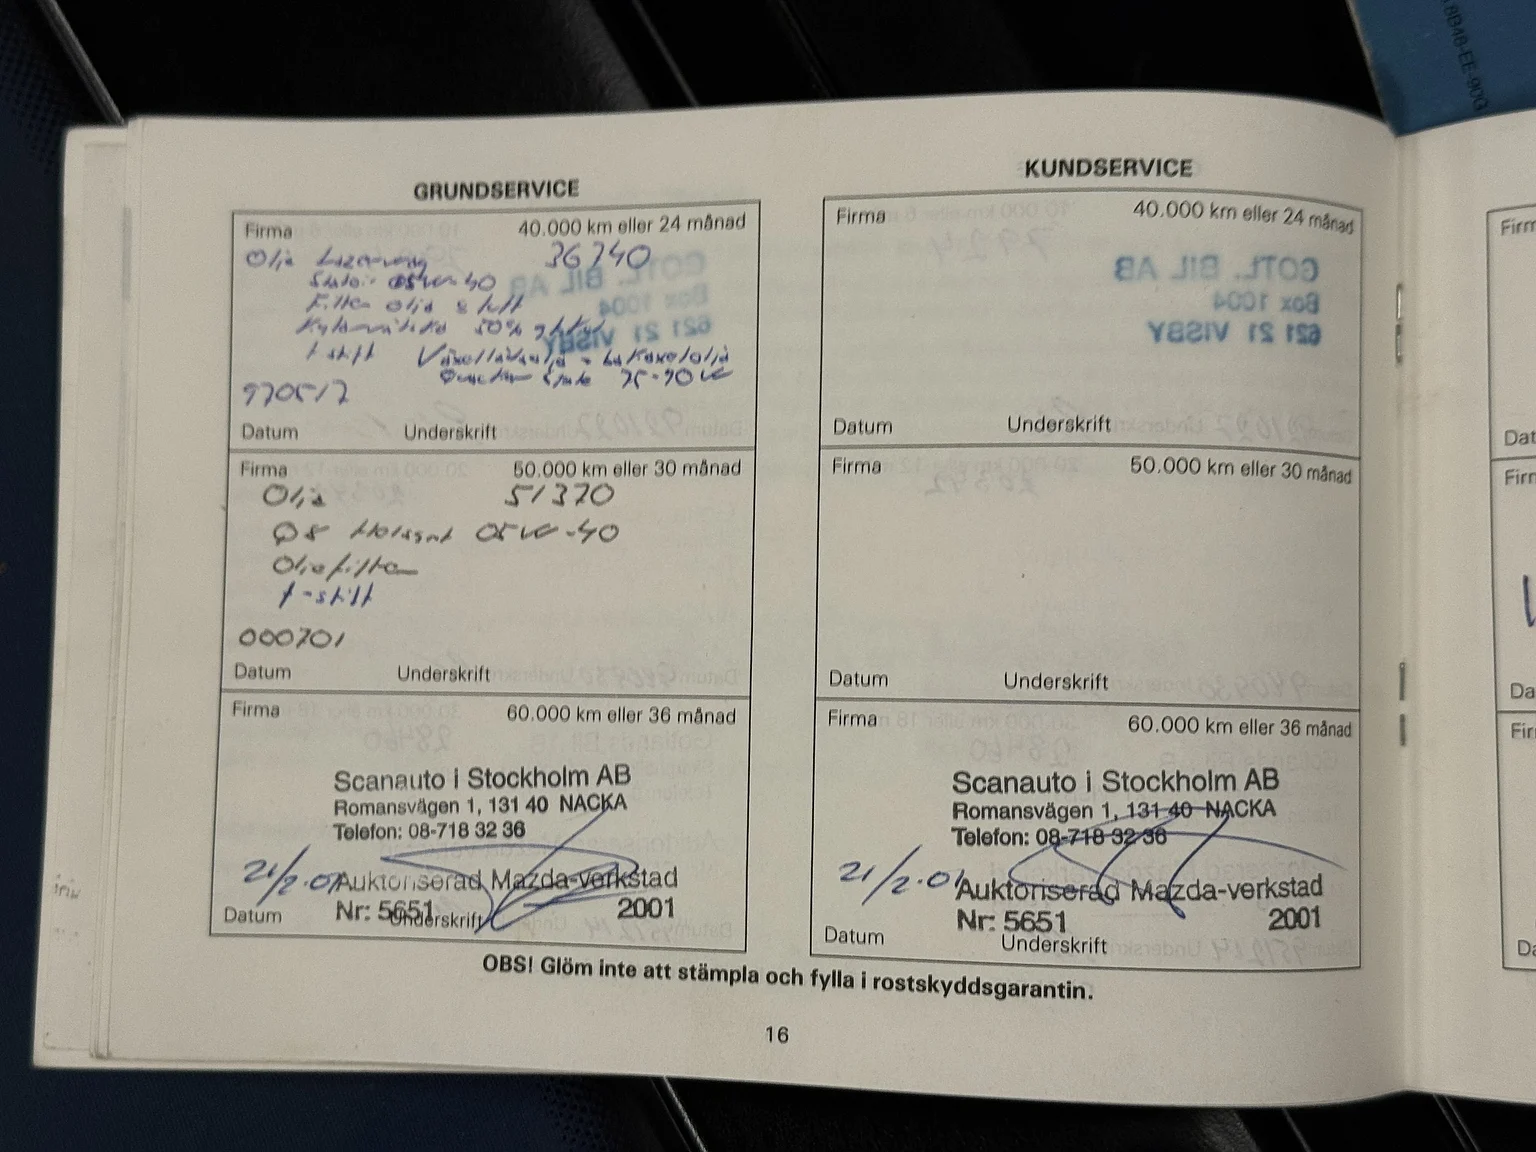 GRUNDSERVICE
Firma 40.000 km eller 24 månad
Olja 36740
Filter olja & luft
Kylarvätska 50% glykol
1 stift Växellådsolja - bakaxelolja
75-90W
970517
Datum Underskrift
Firma 50.000 km eller 30 månad
Olja 51370
Q8 05W-40
Oljefilter
1-stift
000701
Datum Underskrift
Firma 60.000 km eller 36 månad
Scanauto i Stockholm AB
Romansvägen 1, 131 40 NACKA
Telefon: 08-718 32 36
21/2-01 Auktoriserad Mazda-verkstad
Nr: 5651 2001
Datum Underskrift
KUNDSERVICE
Firma 40.000 km eller 24 månad
GOTL. BIL AB
Box 1004
621 21 VISBY
Datum Underskrift
Firma 50.000 km eller 30 månad
Datum Underskrift
Firma 60.000 km eller 36 månad
Scanauto i Stockholm AB
Romansvägen 1, 131 40 NACKA
Telefon: 08-718 32 36
21/2-01 Auktoriserad Mazda-verkstad
Nr: 5651 2001
Datum Underskrift
OBS! Glöm inte att stämpla och fylla i rostskyddsgarantin.
16
8B48-EE-90G